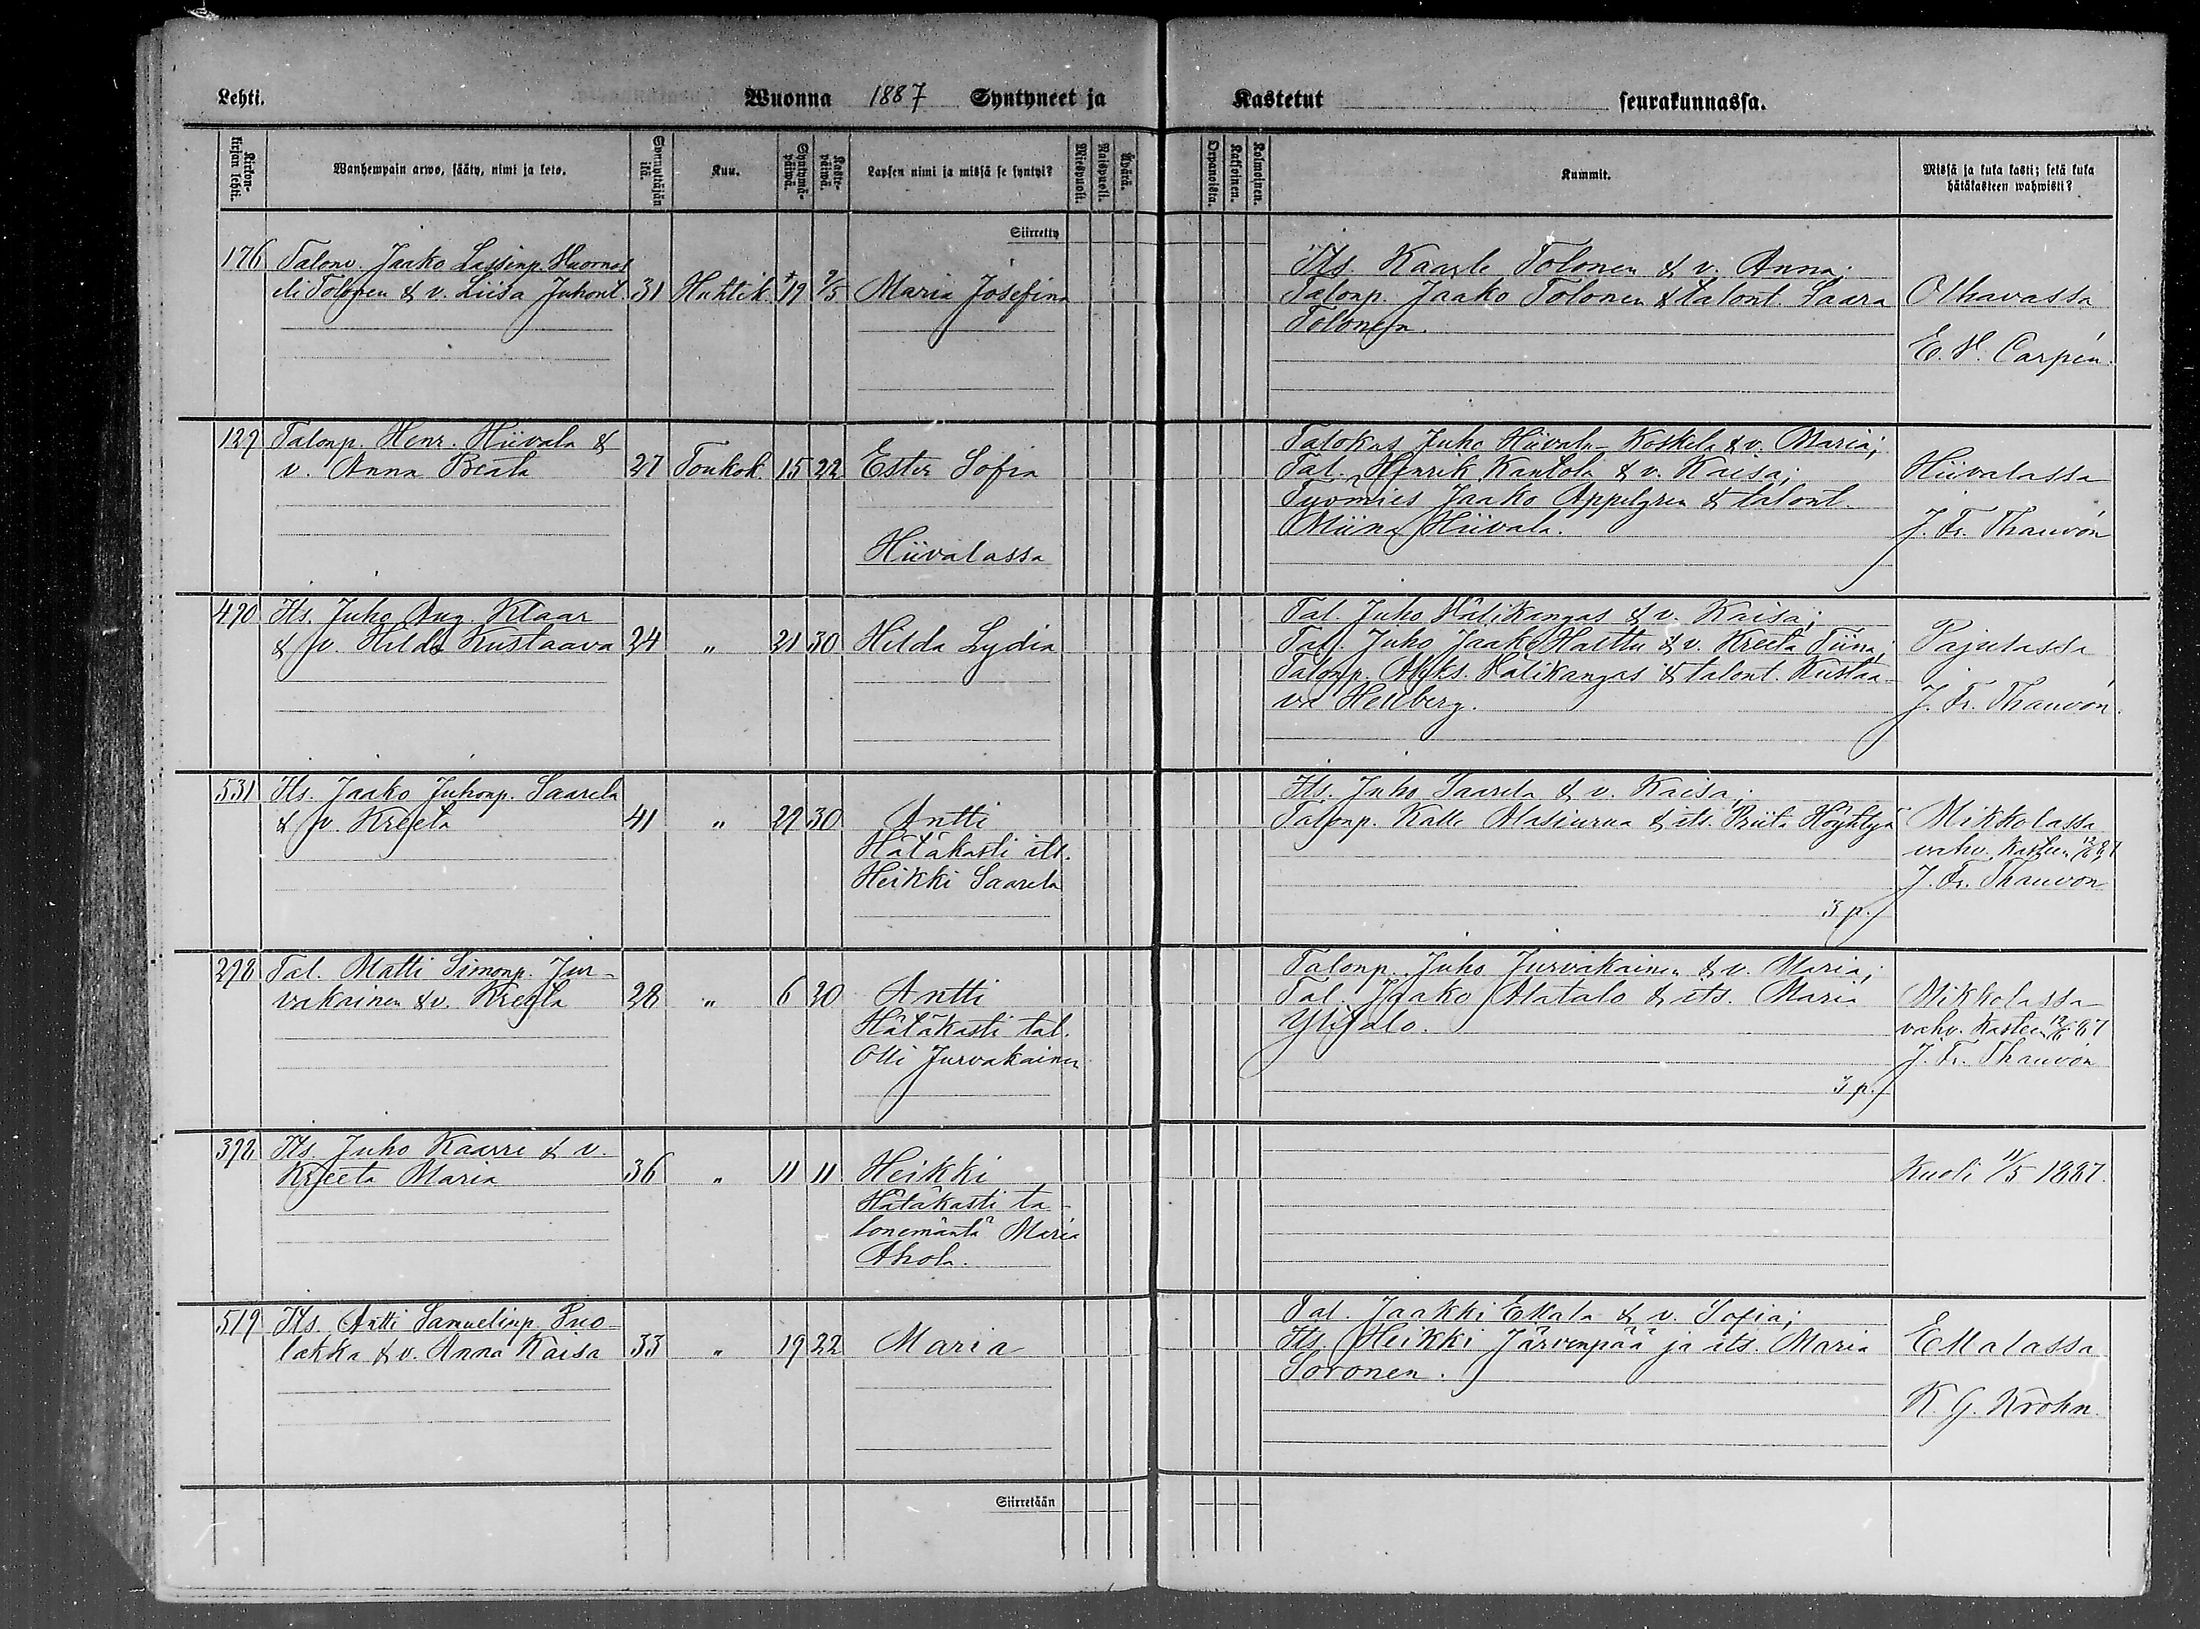 Lehti.
Wuonna 1887 Syntyneet ja
Kastetut seurakunnassa.
Kirkon-
kirjan lehti.
Wanhempain arwo, sääty, nimi ja koto.
Synnyttäjän
ikä.
Kuu.
Syntymä-
päivä.
Kaste-
päivä.
Lapsen nimi ja missä se syntyi?
Miespuoli.
Naispuoli.
Äpärä.
Orpanoista.
Kaksoinen.
Kolmoinen.
Kummit.
Missä ja kuka kasti; sekä kuka
hätäkasteen wahwisti?
Siirretty
176 Talonp. Jaako Lassinp.
eli Tolonen & v. Liisa Juhont. 31 Huhtik. 19 2/5 Maria Josefina
Its. Kaarle Tolonen & v. Anna;
Talonp. Jaako Tolonen & talont. Saara
Tolonen.
Olhavassa
Carpén.
129 Talonp. Henr. Hiivala &
v. Anna Beata 27 Toukok. 15 22 Ester Sofia
Hiivalassa
Talokas Juho Hiivala-Koskela & v. Maria;
Tal. Henrik Kantola & v. Kaisa;
Työmies Jaako Appelgren & talont.
Miina Hiivala.
Hiivalassa
J. Fr. Thauvón
490 Its. Juho Aug. Klaar
& v. Hilda Kustaava 24 " 21 30 Hilda Lydia
Tal. Juho Välikangas & v. Kaisa;
Tal. Juho Jaako Halttu & v. Kreeta Tiina;
Talonp. Aleks. Välikangas & talont. Kustaa-
va Hellberg.
Pajulassa
J. Fr. Thauvón.
531 Its. Jaako Juhonp. Saarela
& v. Kreeta 41 " 29 30 Antti
Hätäkasti its.
Heikki Saarela
Its. Juho Saarela & v. Kaisa;
Talonp. Kalle Alasiurua & its. Priita Höyhtyä
3 p.
Mikkolassa
vahv. kasteen 12/6 87
J. Fr. Thauvón
298 Tal. Matti Simonp. Jur-
vakainen & v. Kreeta 28 " 6 30 Antti
Hätäkasti tal.
Olli Jurvakainen
Talonp. Juho Jurvakainen & v. Maria;
Tal. Jaako Alatalo & its. Maria
Ylitalo.
3 p.
Mikkolassa
vahv. kasteen 12/6 87
J. Fr. Thauvón
398 Its. Juho Kaarre & v.
Kreeta Maria 36 " 11 11 Heikki
Hätäkasti ta-
lonemäntä Maria
Ahola.
Kuoli 11/5 1887.
519 Its. Antti Samuelinp. Puo-
lakka & v. Anna Kaisa 33 " 19 22 Maria
Tal. Jaakki Ekkala & v. Sofia;
Its. Heikki Järvenpää ja its. Maria
Soronen.
Ekkalassa
K. G. Krohn.
Siirretään